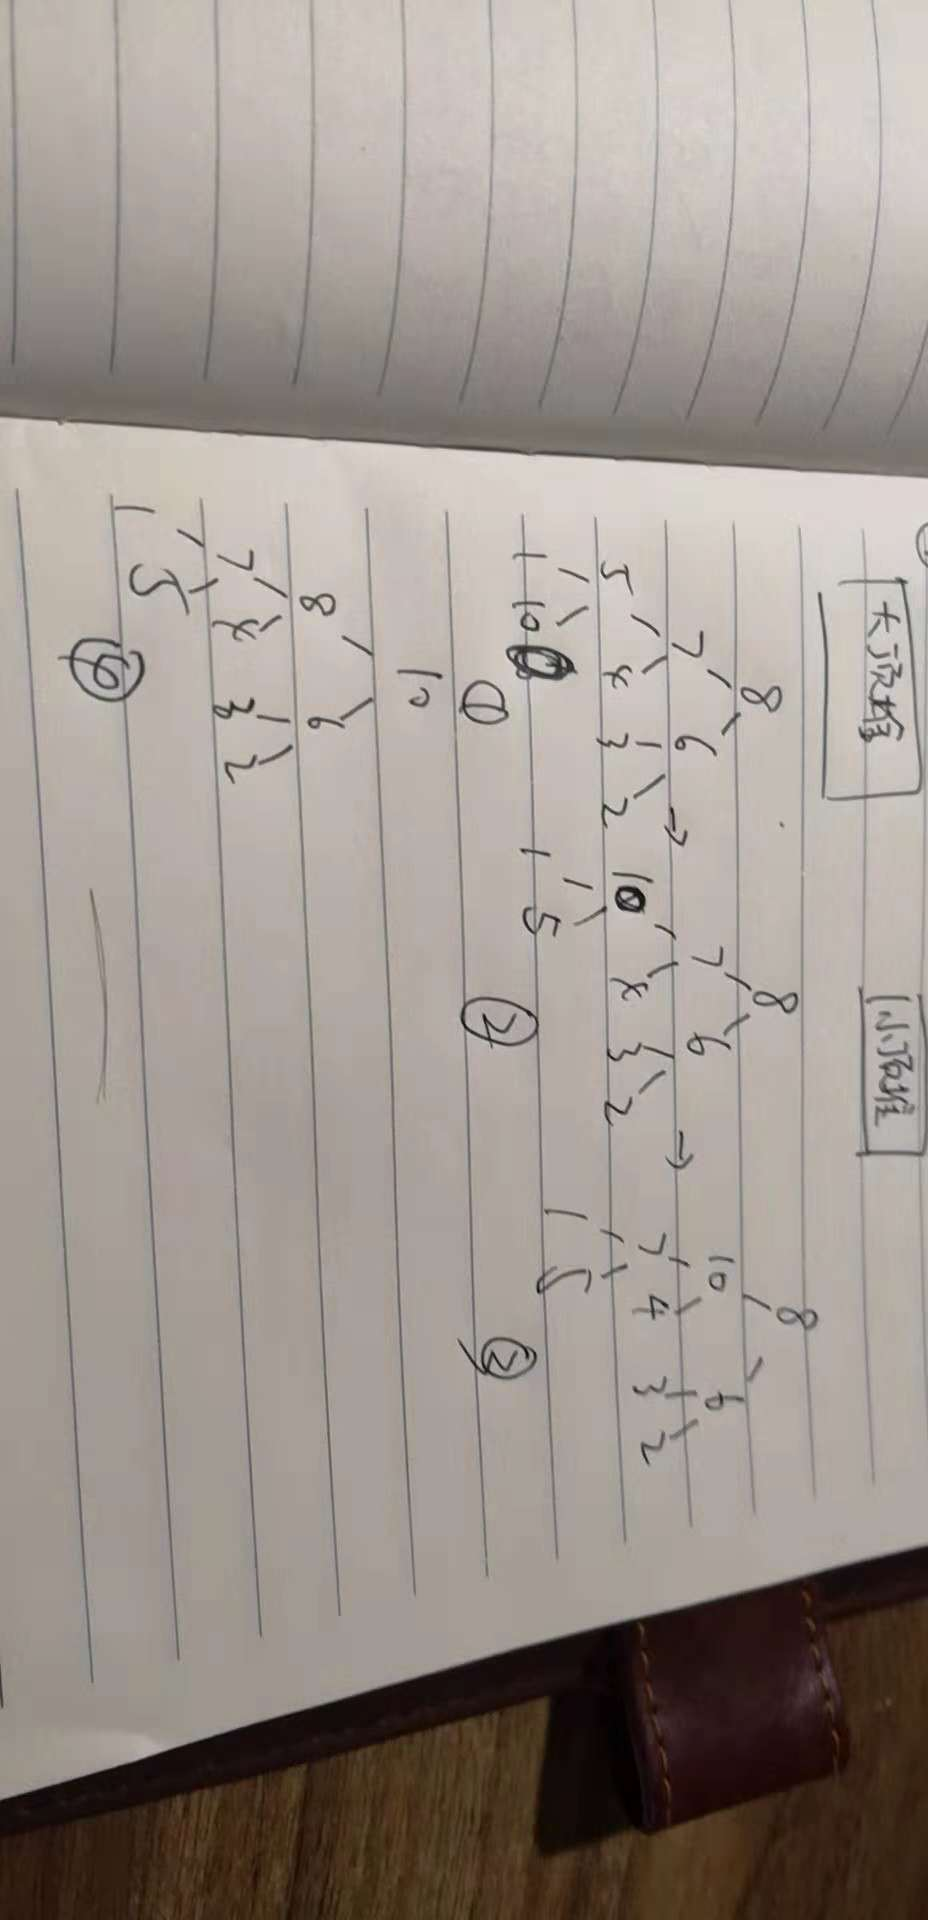 大顶堆 小顶堆
8 8 8
7 6 → 7 6 → 10 6
5 4 3 2 10 4 3 2 7 4 3 2
1 10 1 5 1 5
① ② ③
10
8 6
7 4 3 2
1 5
④